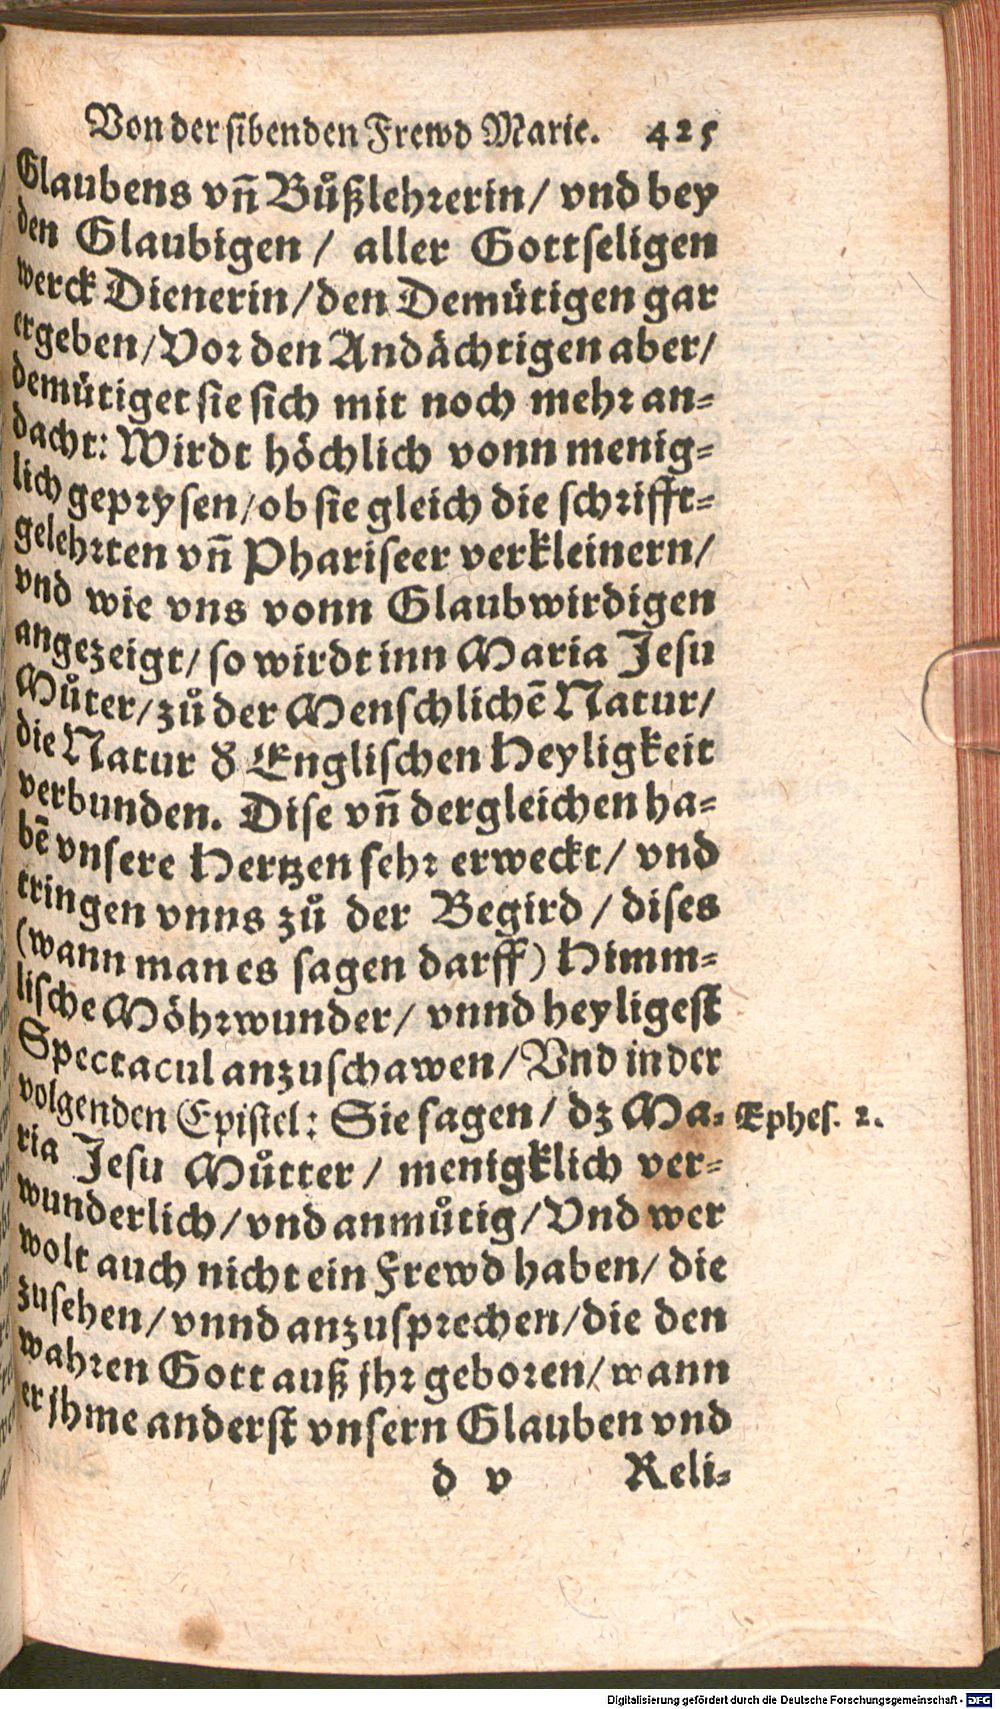 Von der sibenden Frewd Marie. 425
Glaubens vñ Bůßlehrerin/ vnd bey
den Glaubigen/ aller Gottseligen
werck Dienerin/den Demütigen gar
ergeben/Vor den Andächtigen aber/
demütiget sie sich mit noch mehr an-
dacht: Wirdt höchlich vonn menig-
lich geprysen/ob sie gleich die schrifft-
gelehrten vñ Phariseer verkleinern/
vnd wie vns vonn Glaubwirdigen
angezeigt/ so wirdt inn Maria Jesu
Můter/zů der Menschlichē Natur/
die Natur d' Englischen Heyligkeit
verbunden. Dise vñ dergleichen ha-
bē vnsere Hertzen sehr erweckt/ vnd
tringen vnns zů der Begird/ dises
(wann man es sagen darff) Himm-
lische Möhrwunder/ vnnd heyligest
Spectacul anzuschawen/Vnd in der
volgenden Epistel: Sie sagen/ dz Ma-
Ephes. 2.
ria Jesu Můtter/ menigklich ver-
wunderlich/vnd anmůtig/Vnd wer
wolt auch nicht ein Frewd haben/ die
zusehen/vnnd anzusprechen/die den
wahren Gott auß jhr geboren/wann
er jhme anderst vnsern Glauben vnd
d v Reli-
Digitalisierung gefördert durch die Deutsche Forschungsgemeinschaft - DFG